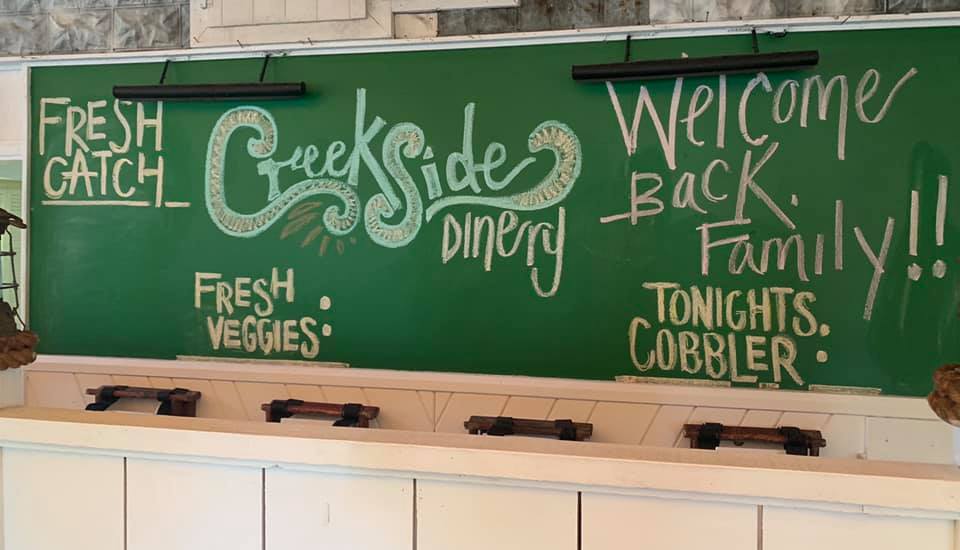 FRESH
CATCH
CreekSide
DINERY
Welcome
BACK.
Family!!
FRESH
VEGGIES:
TONIGHTS.
COBBLER: